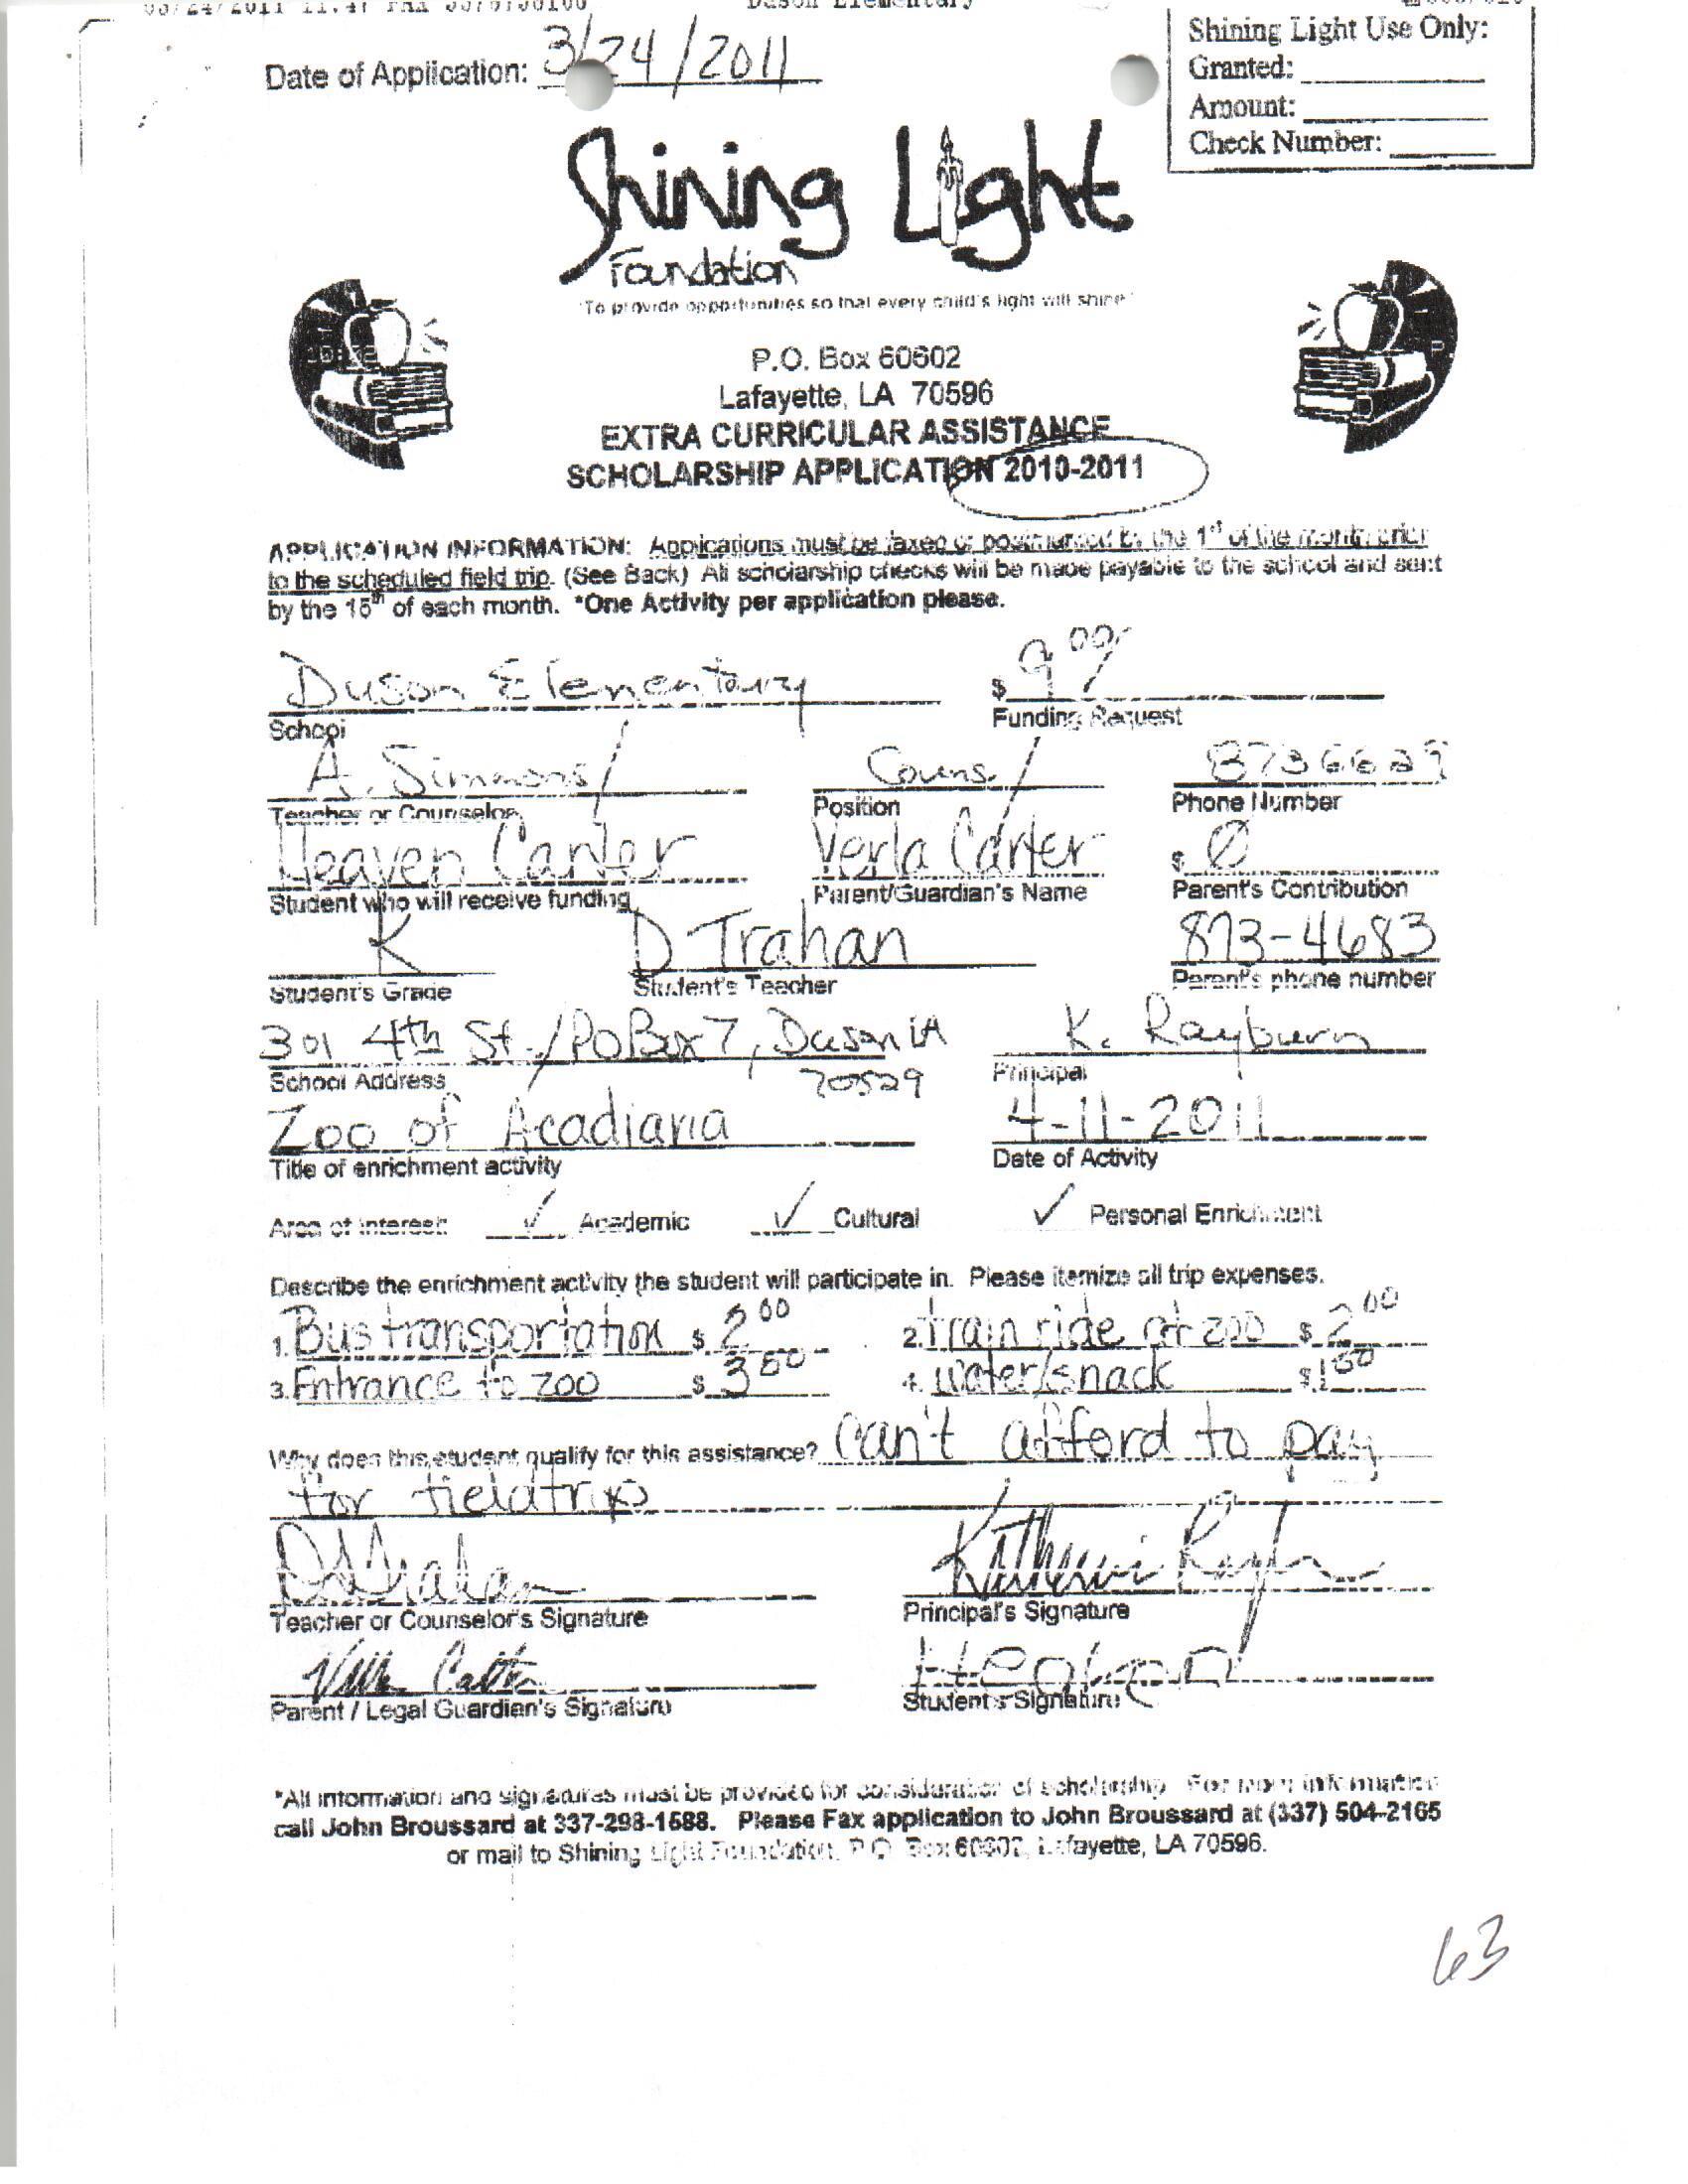 Duson Elementary
Date of Application: 3/24/2011
Shining Light Use Only:
Granted:
Amount:
Check Number:
Shining Light
Foundation
"To provide opportunities so that every child's light will shine"
P.O. Box 60602
Lafayette, LA 70596
EXTRA CURRICULAR ASSISTANCE
SCHOLARSHIP APPLICATION 2010-2011
APPLICATION INFORMATION: Applications must be faxed or postmarked by the 1st of the month prior
to the scheduled field trip. (See Back) All scholarship checks will be made payable to the school and sent
by the 15th of each month. *One Activity per application please.
Duson Elementary $ 9.00
School Funding Request
A. Simmons/ Couns./ 8736629
Teacher or Counselor Position Phone Number
Heaven Carter Verla Carter $ 0
Student who will receive funding Parent/Guardian's Name Parent's Contribution
K D Trahan 873-4683
Student's Grade Student's Teacher Parent's phone number
301 4th St./PO Box 7, Duson LA K. Rayburn
School Address 70529 Principal
Zoo of Acadiana 4-11-2011
Title of enrichment activity Date of Activity
Area of interest: ✓ Academic ✓ Cultural ✓ Personal Enrichment
Describe the enrichment activity the student will participate in. Please itemize all trip expenses.
1. Bus transportation $ 2 00 2. train ride at zoo $ 2 00
3. Entrance to zoo $ 3 00 4. water/snack $
Why does this student qualify for this assistance? can't afford to pay
for fieldtrip
D Trahan Katherine
Teacher or Counselor's Signature Principal's Signature
Parent / Legal Guardian's Signature Student's Signature
*All information and signatures must be provided for consideration of scholarship. For more information
call John Broussard at 337-298-1588. Please Fax application to John Broussard at (337) 504-2165
or mail to Shining Light Foundation, P.O. Box 60602, Lafayette, LA 70596.
63